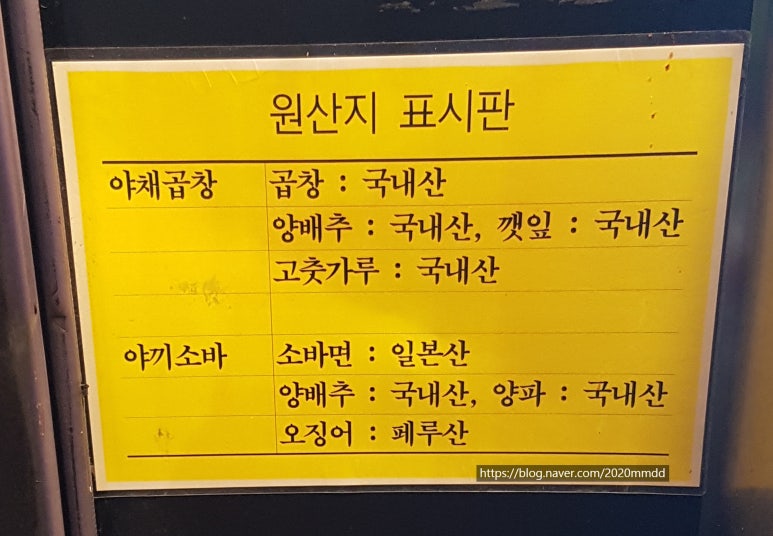 원산지 표시판
야채곱창 곱창 : 국내산
양배추 : 국내산, 깻잎 : 국내산
고춧가루 : 국내산
야끼소바 소바면 : 일본산
양배추 : 국내산, 양파 : 국내산
오징어 : 페루산
https://blog.naver.com/2020mmdd